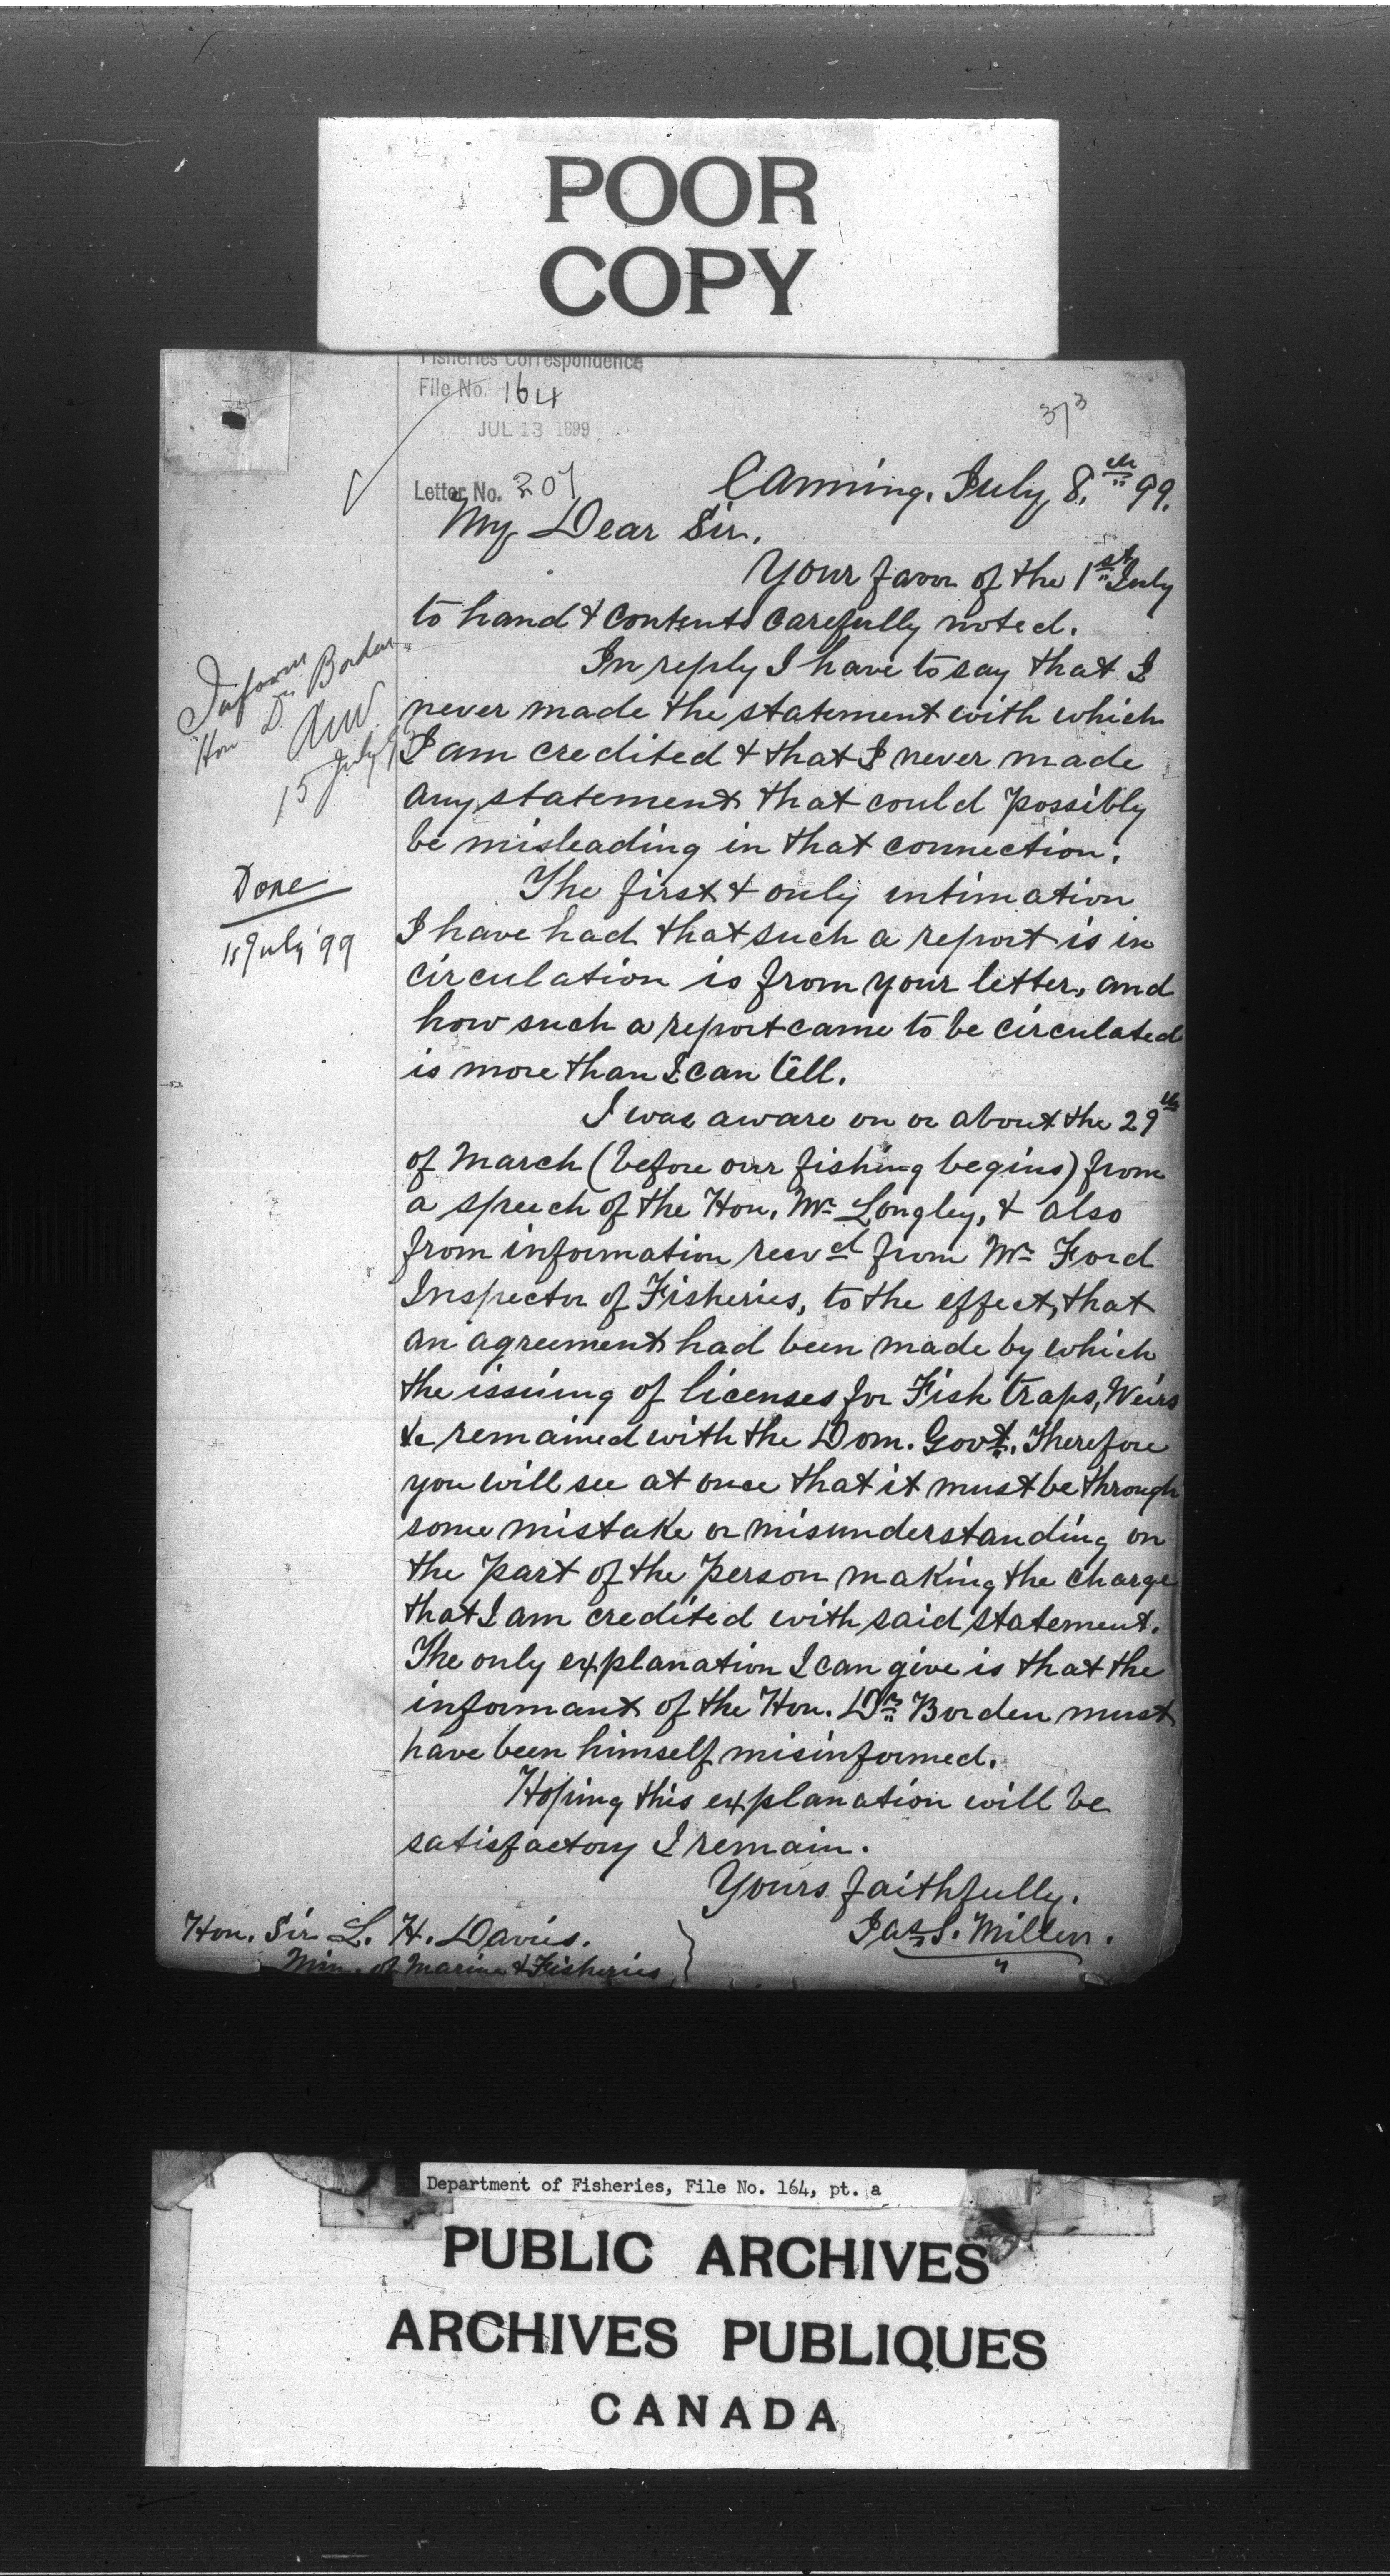 POOR
COPY
Fisheries Correspondence
File No. 164
JUL 13 1899
373
Letter No. 207
Canning, July 8.th 99.
My Dear Sir,
Your favor of the 1st July
to hand & contents carefully noted.
In reply I have to say that I
never made the statement with which
I am credited & that I never made
any statement that could possibly
be misleading in that connection.
The first & only intimation
I have had that such a report is in
circulation is from your letter, and
how such a report came to be circulated
is more than I can tell.
I was aware on or about the 29th
of March (before our fishing begins) from
a speech of the Hon. Mr Longley, & also
from information recvd from Mr Ford
Inspector of Fisheries, to the effect, that
an agreement had been made by which
the issuing of licenses for Fish traps, Weirs
&c remained with the Dom. Govt. Therefore
you will see at once that it must be through
some mistake or misunderstanding on
the part of the person making the charge
that I am credited with said statement.
The only explanation I can give is that the
informant of the Hon. Dr Borden must
have been himself misinformed.
Hoping this explanation will be
satisfactory I remain.
Yours faithfully.
Jas S. Miller.
Hon. Sir L. H. Davies.
Min. of Marine & Fisheries
Inform
Hon Dr Borden
15 July
Done
15 July '99
Department of Fisheries, File No. 164, pt. a
PUBLIC ARCHIVES
ARCHIVES PUBLIQUES
CANADA